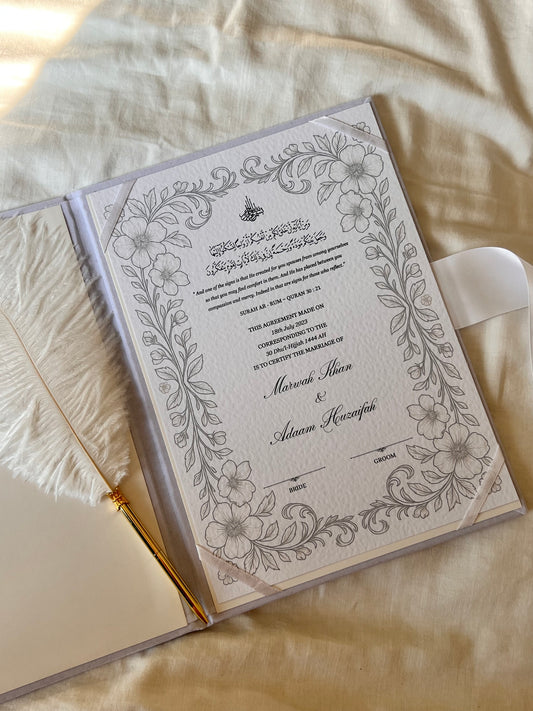 " And one of the signs is that He created for you spouses from among yourselves
so that you may find comfort in them. And He has placed between you
compassion and mercy. Indeed in that are signs for those who reflect."
SURAH AR - RUM - QURAN 30 : 21
THIS AGREEMENT MADE ON
18th July 2023
CORRESPONDING TO THE
30 Dhu'l-Hijjah 1444 AH
IS TO CERTIFY THE MARRIAGE OF
Marwah Khan
&
Adaam Huzaifah
BRIDE
GROOM